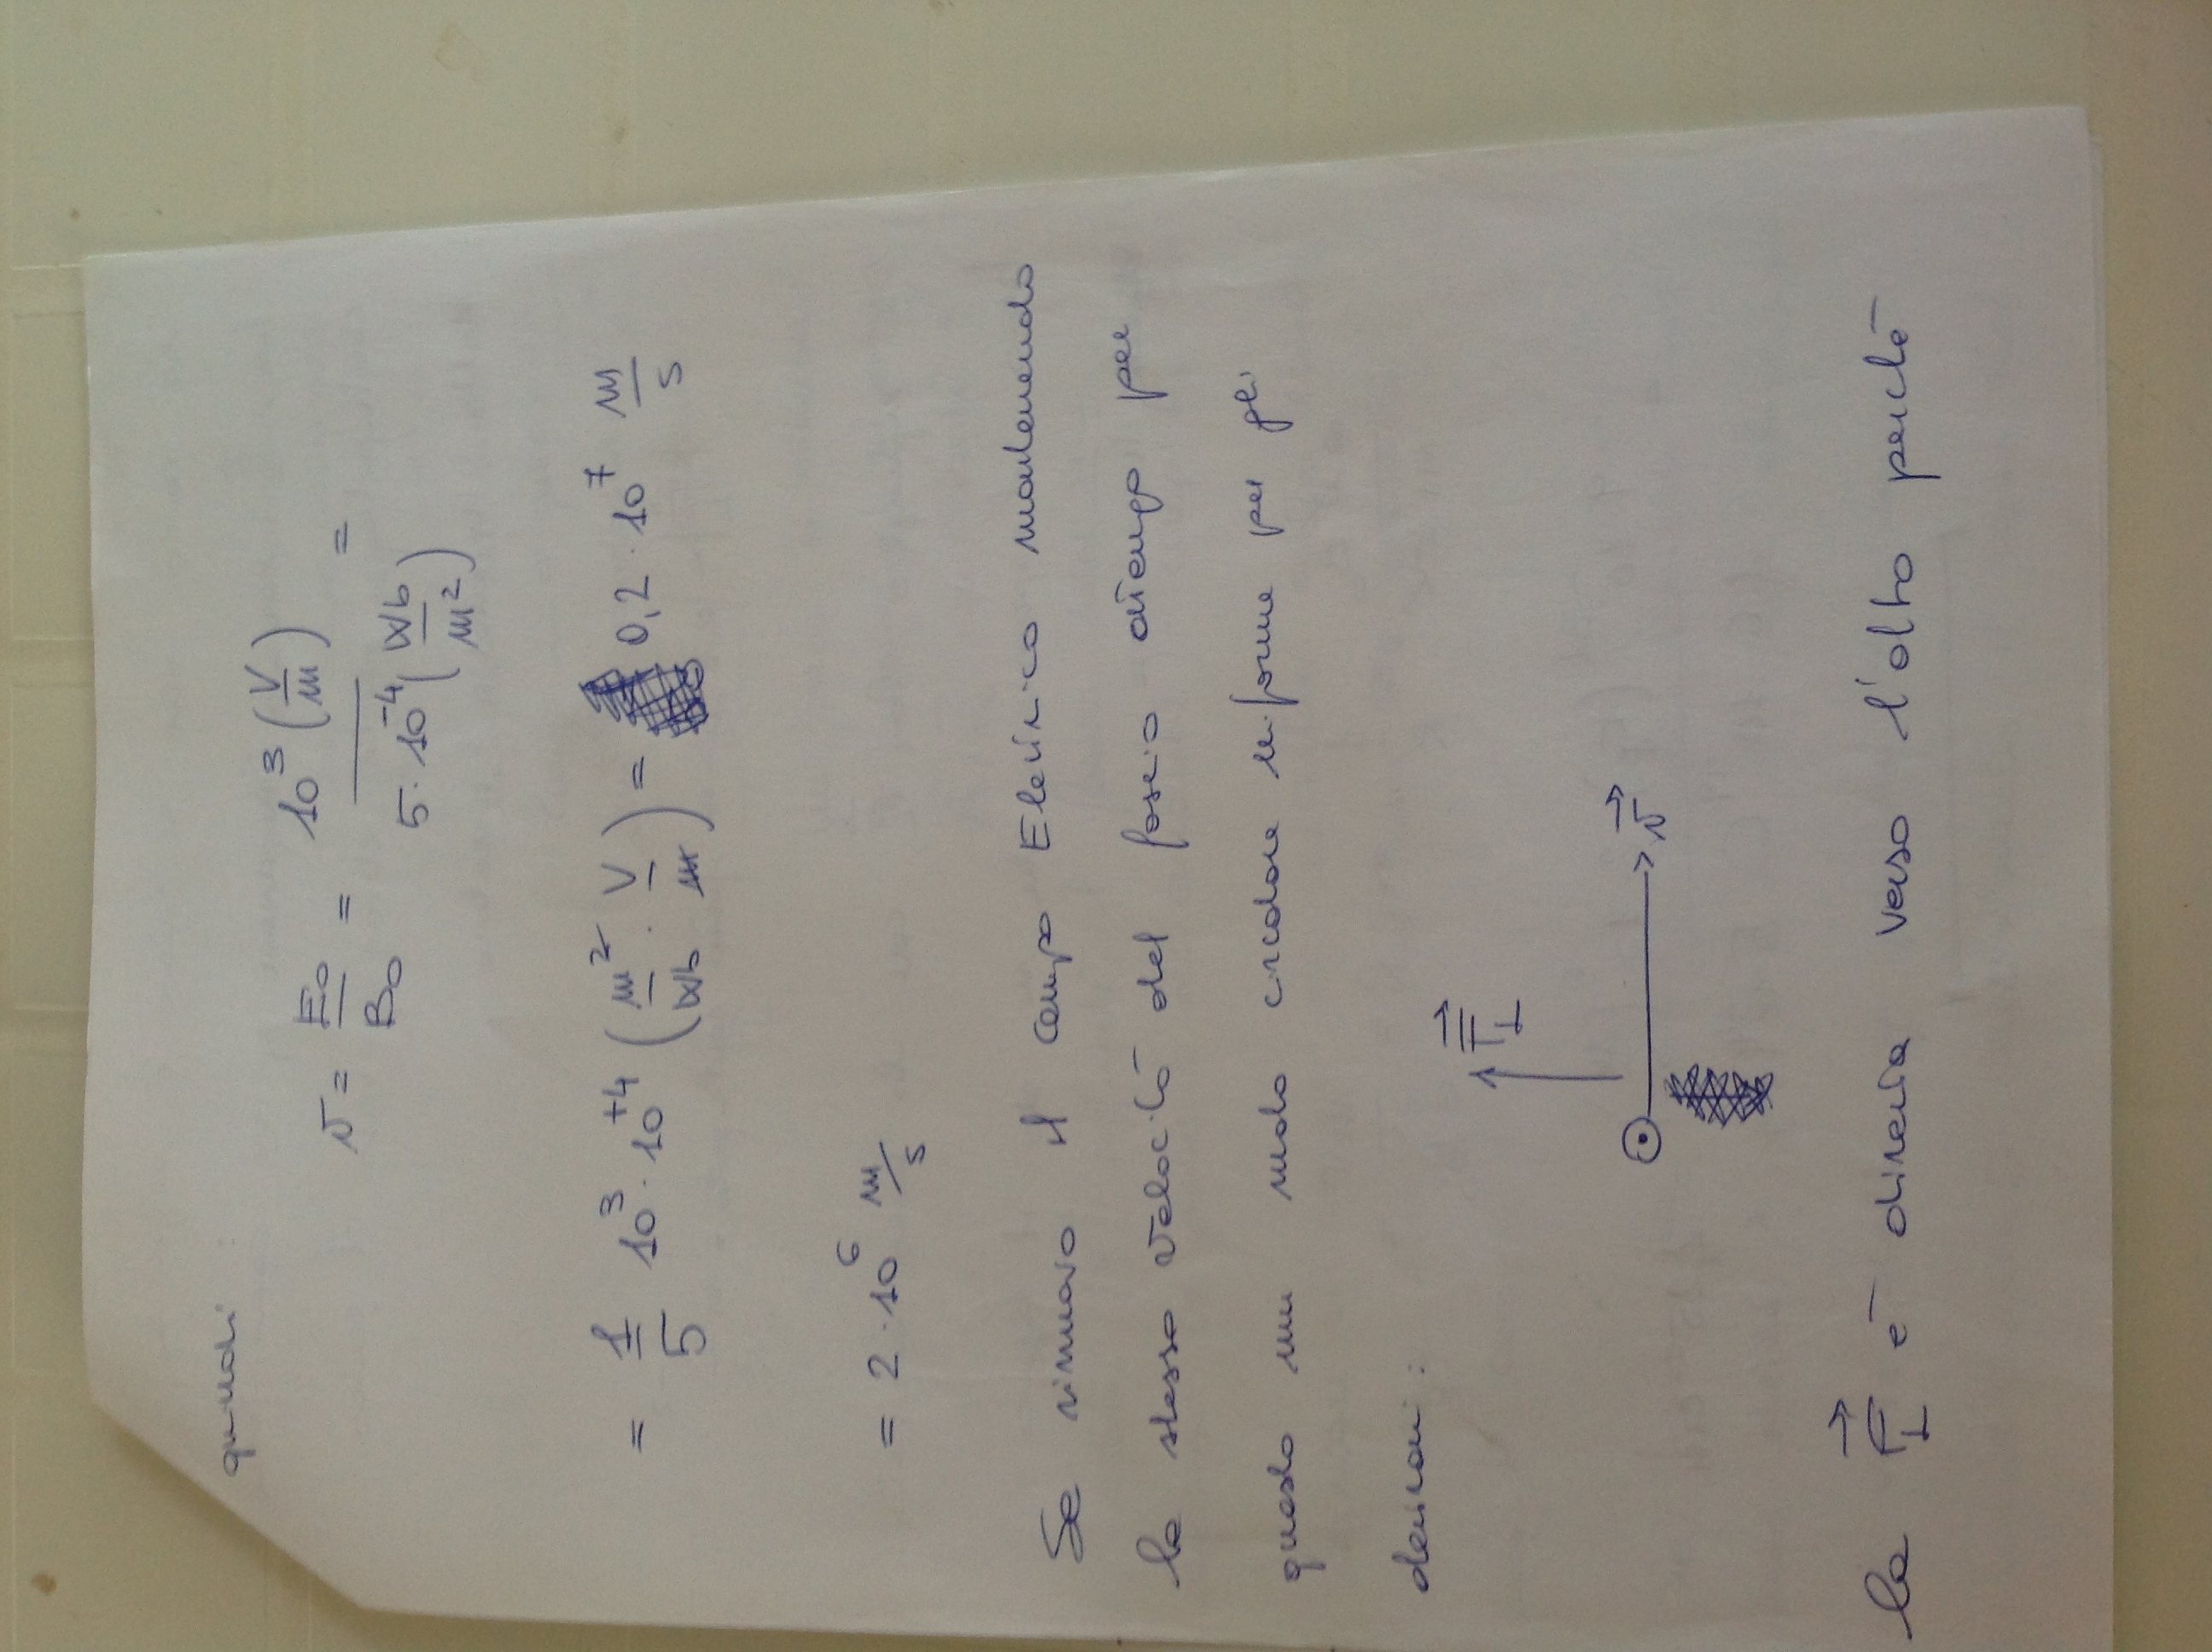 quindi :
v = E₀/B₀ = 10³ (V/m) / 5·10⁻⁴ (Wb/m²) =
= 1/5 10³·10⁺⁴ (m²/Wb · V/m) = 0,2·10⁷ m/s
= 2·10⁶ m/s
Se rimuovo il campo Elettrico mantenendo
la stessa velocità del fascio ottengo per
questo un moto circolare uniforme per gli
elettroni :
F⃗_L
v⃗
la F⃗_L è diretta verso l'alto perché